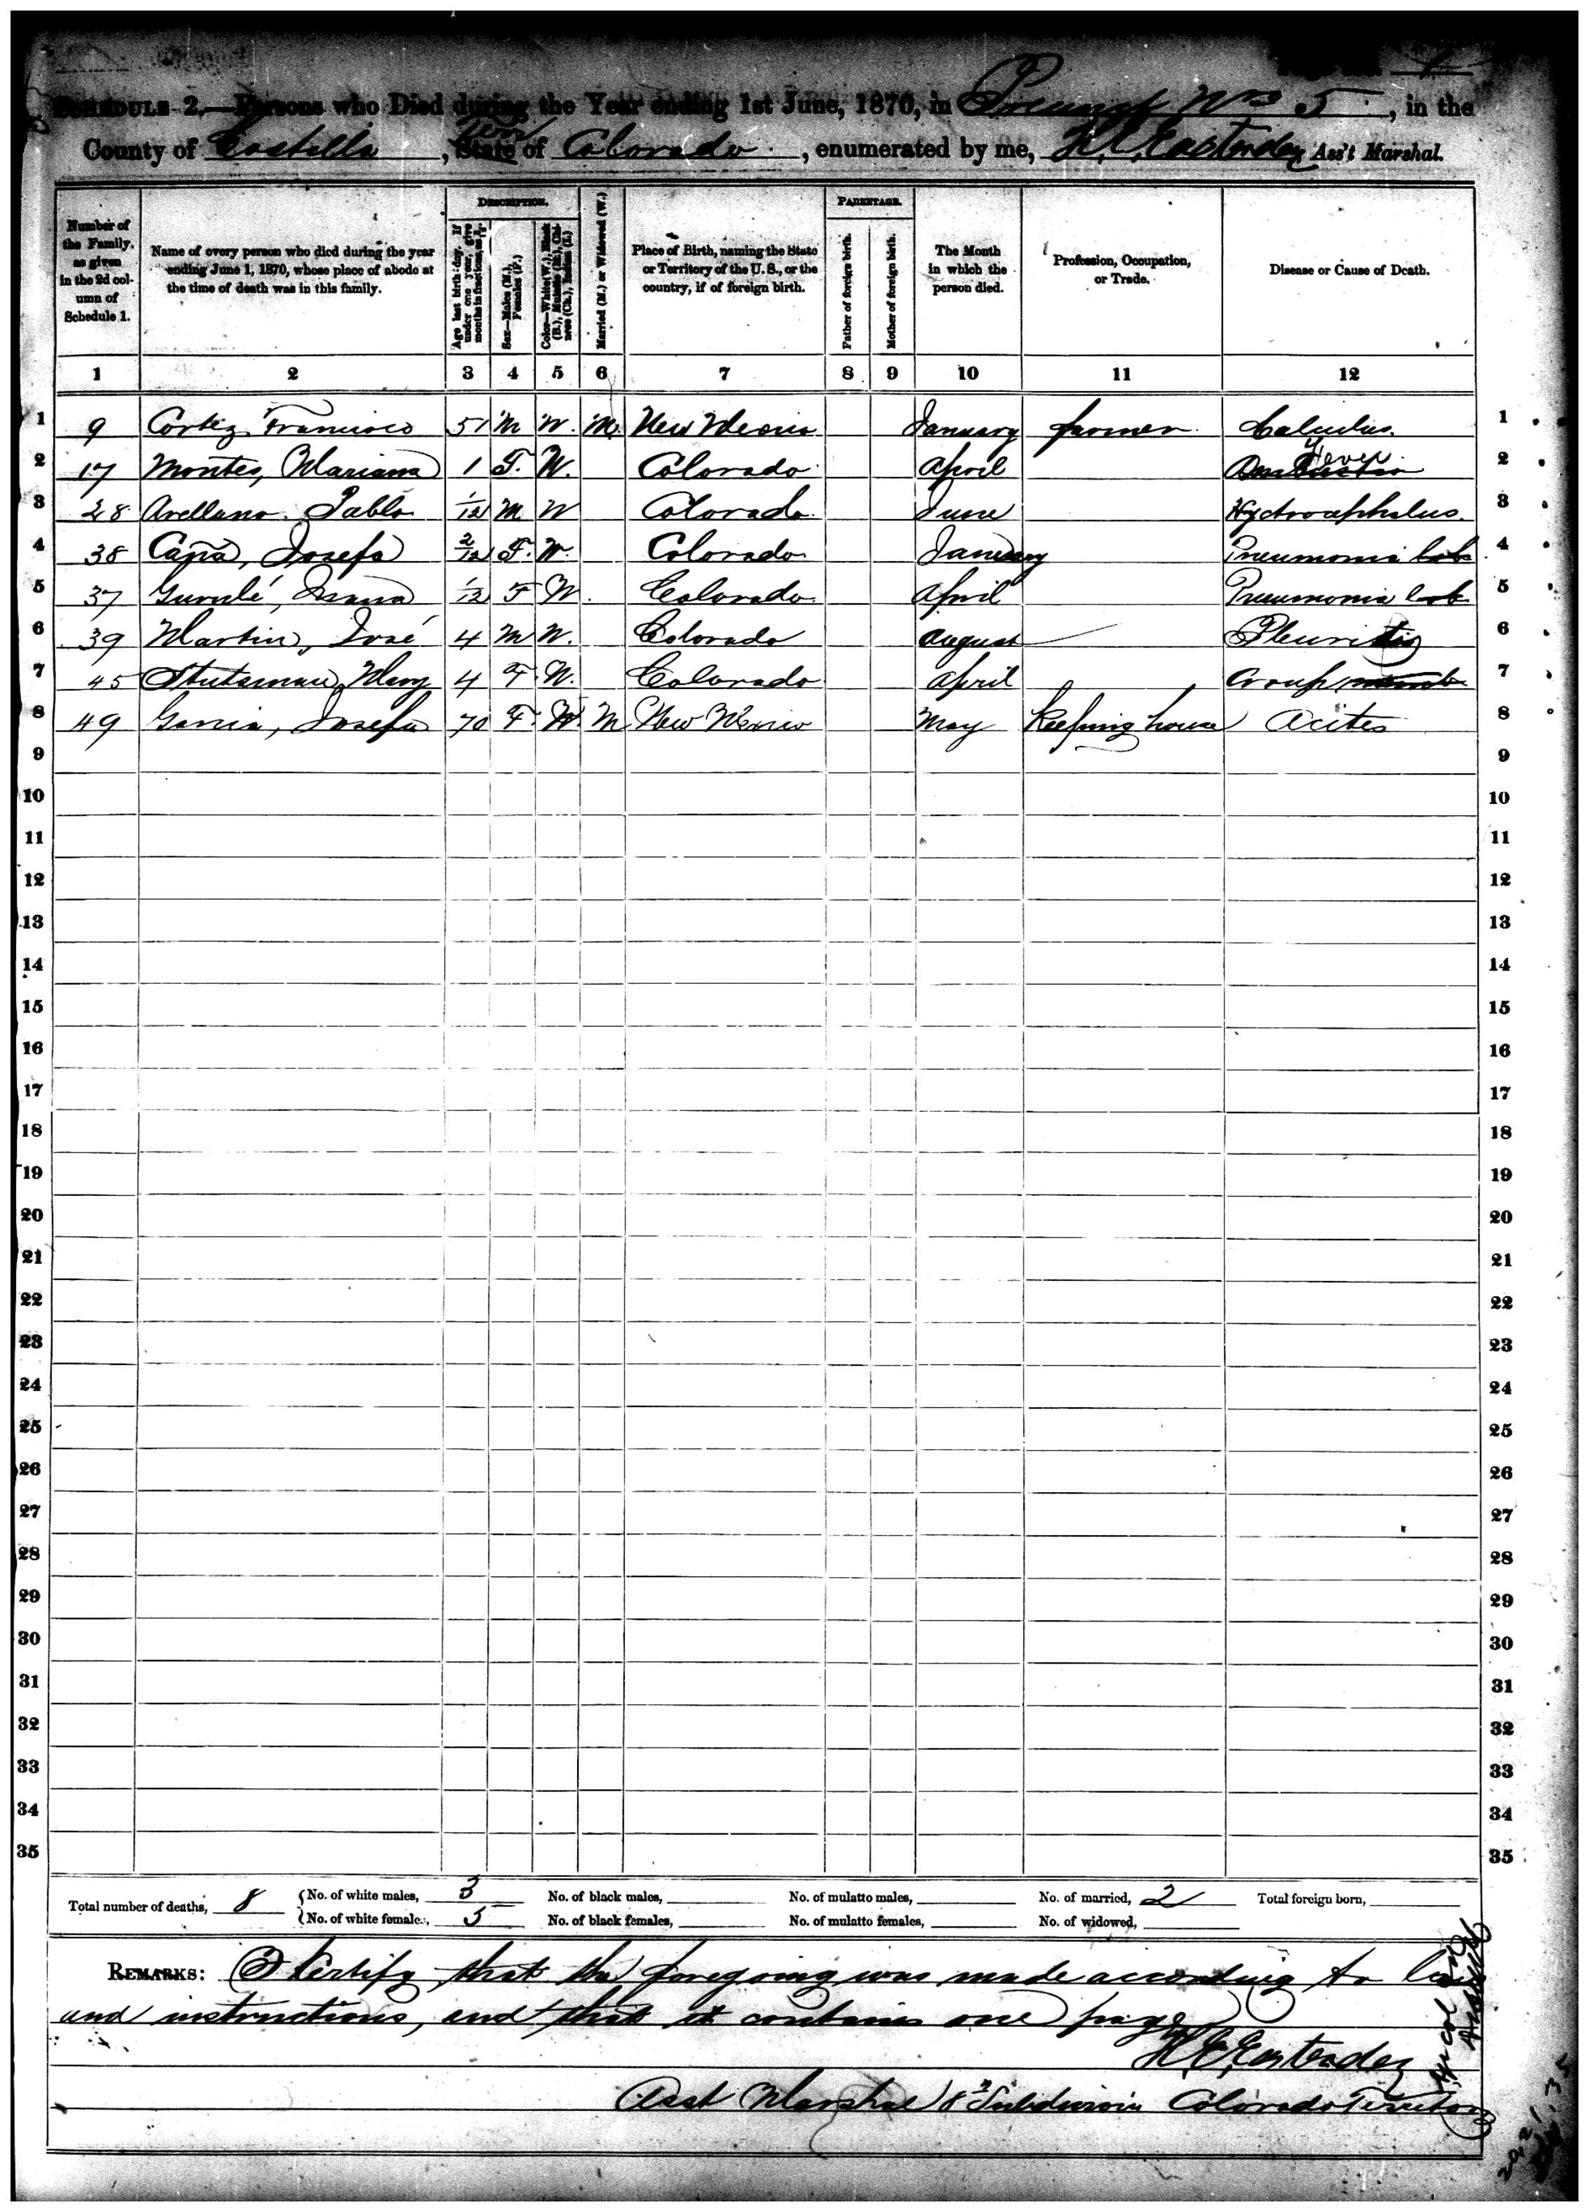 SCHEDULE 2.—Persons who Died during the Year ending 1st June, 1870, in Precinct No 5, in the
County of Costilla, Terr State of Colorado, enumerated by me, H. E. Easterday Ass't Marshal.
Number of the Family, as given in the 2d column of Schedule 1.
Name of every person who died during the year ending June 1, 1870, whose place of abode at the time of death was in this family.
DESCRIPTION.
Age last birth-day. If under one year, give months in fractions, as
Sex—Males (M.), Females (F.)
Color—White (W.), Black (B.), Mulatto (M.), Chinese (Ch.), Indian (I.)
Married (M.) or Widowed (W.)
Place of Birth, naming the State or Territory of the U. S., or the country, if of foreign birth.
PARENTAGE.
Father of foreign birth.
Mother of foreign birth.
The Month in which the person died.
Profession, Occupation, or Trade.
Disease or Cause of Death.
1 2 3 4 5 6 7 8 9 10 11 12
1 9 Cortez Francisco 51 M W. M. New Mexico January farmer Calculus. 1
2 17 Montes, Mariana 1 F. W. Colorado April Fever 2
3 28 Arellano Pablo 1/12 M W Colorado June Hydrocephalus. 3
4 38 Caña, Josefa 2/12 F. W. Colorado January Pneumonia lob 4
5 37 Gurulé, Juana 1/12 F W. Colorado April Pneumonia lob 5
6 39 Martin, José 4 M W. Colorado August Pleuritis 6
7 45 Stutsman, Mary 4 F. W. Colorado April Croup 7
8 49 Garcia, Josefa 70 F. W. M New Mexico May Keeping house Acites 8
9 9
10 10
11 11
12 12
13 13
14 14
15 15
16 16
17 17
18 18
19 19
20 20
21 21
22 22
23 23
24 24
25 25
26 26
27 27
28 28
29 29
30 30
31 31
32 32
33 33
34 34
35 35
Total number of deaths, 8 No. of white males, 3 No. of black males, No. of mulatto males, No. of married, 2 Total foreign born,
No. of white females, 5 No. of black females, No. of mulatto females, No. of widowed,
REMARKS: I Certify that the foregoing was made according to law
and instructions, and that it contains one page
H. E. Easterday
Asst Marshal 8th Subdivision Colorado Territory